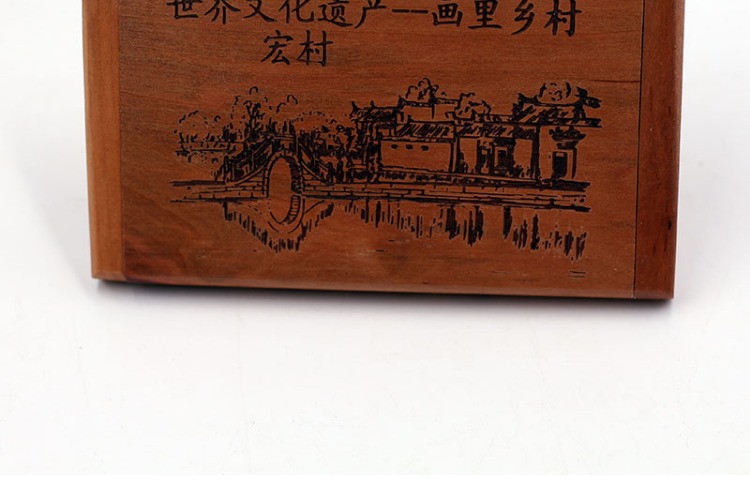 世界文化遗产--画里乡村
宏村